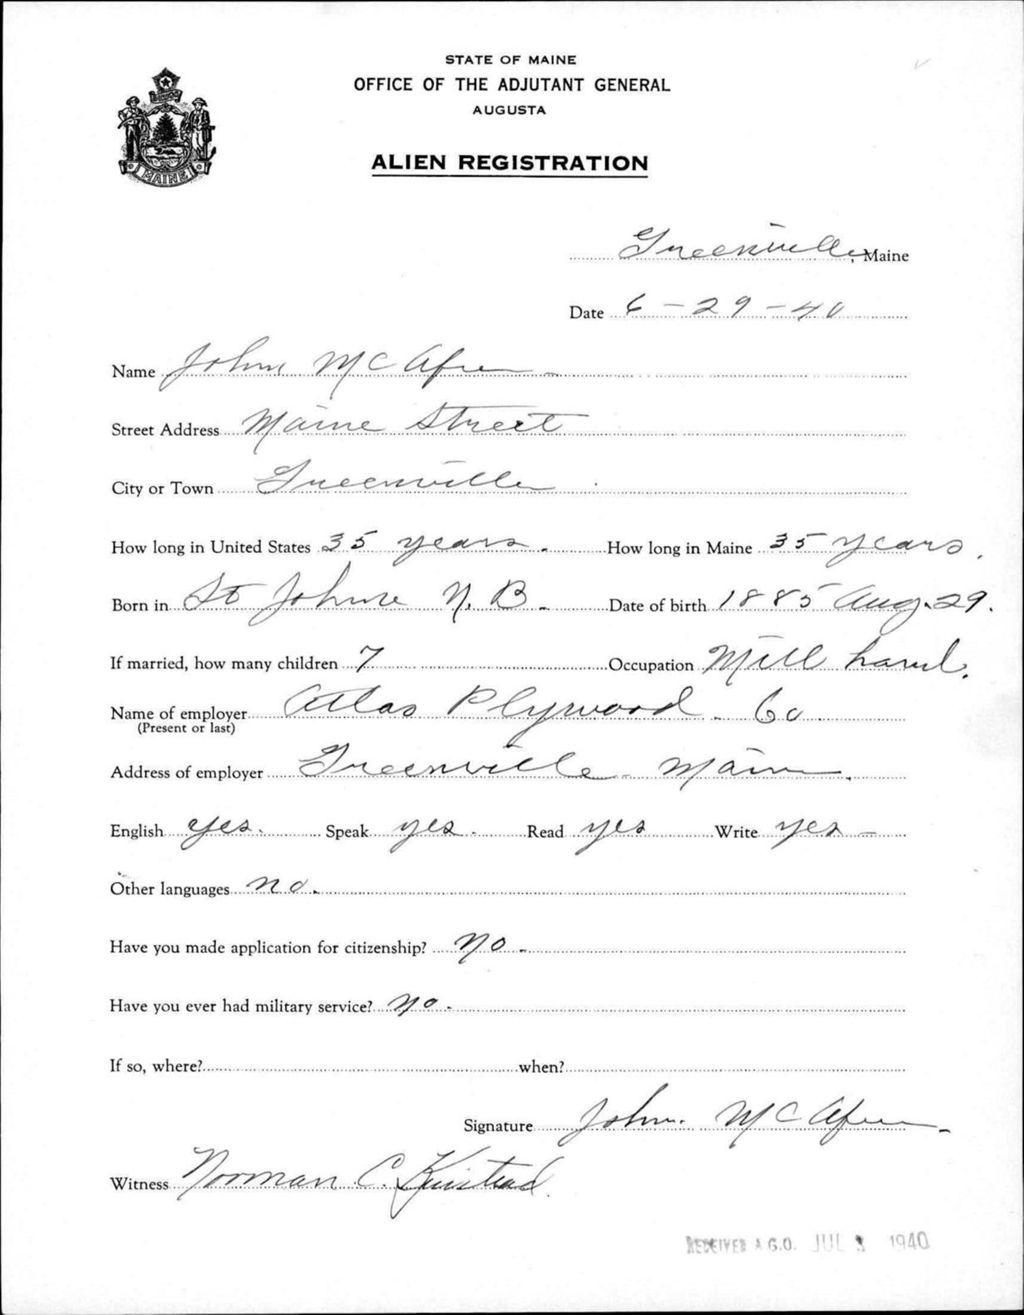 STATE OF MAINE
OFFICE OF THE ADJUTANT GENERAL
AUGUSTA
ALIEN REGISTRATION
MAINE
Greenville, Maine
Date 6-29-40
Name John McAfee
Street Address Maine Street
City or Town Greenville
How long in United States 35 years. How long in Maine 35 years.
Born in St Johns N.B. Date of birth 1885 Aug. 29.
If married, how many children 7 Occupation Mill hand.
Name of employer Atlas Plywood Co
(Present or last)
Address of employer Greenville Maine.
English yes. Speak yes. Read yes Write yes
Other languages no.
Have you made application for citizenship? No.
Have you ever had military service? No.
If so, where? when?
Signature John McAfee
Witness Norman C.
RECEIVED A.G.O. JUL 1940